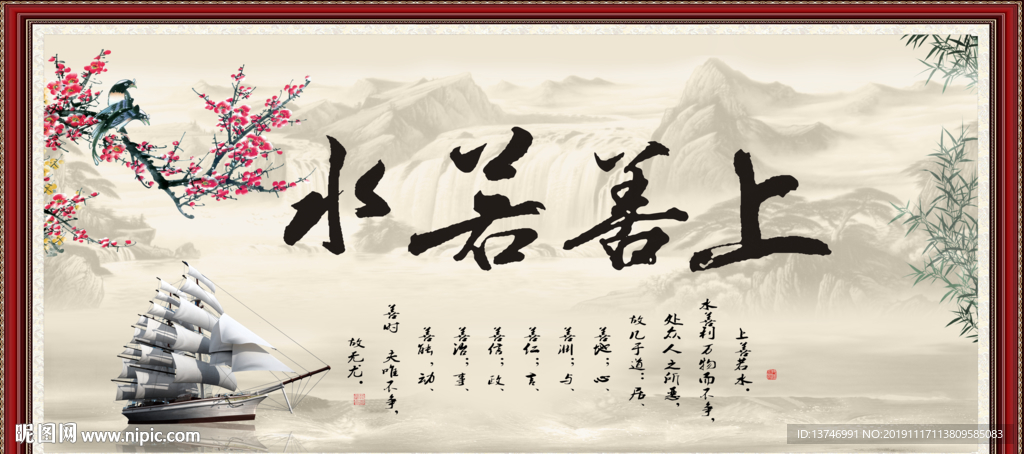 上善若水
上善若水。
水善利万物而不争，
处众人之所恶，
故几于道：居、
善地；心、
善渊；与、
善仁；言、
善信；政、
善治；事、
善能；动、
善时 夫唯不争，
故无尤。
昵图网 www.nipic.com
ID:13746991 NO:20191117113809585083